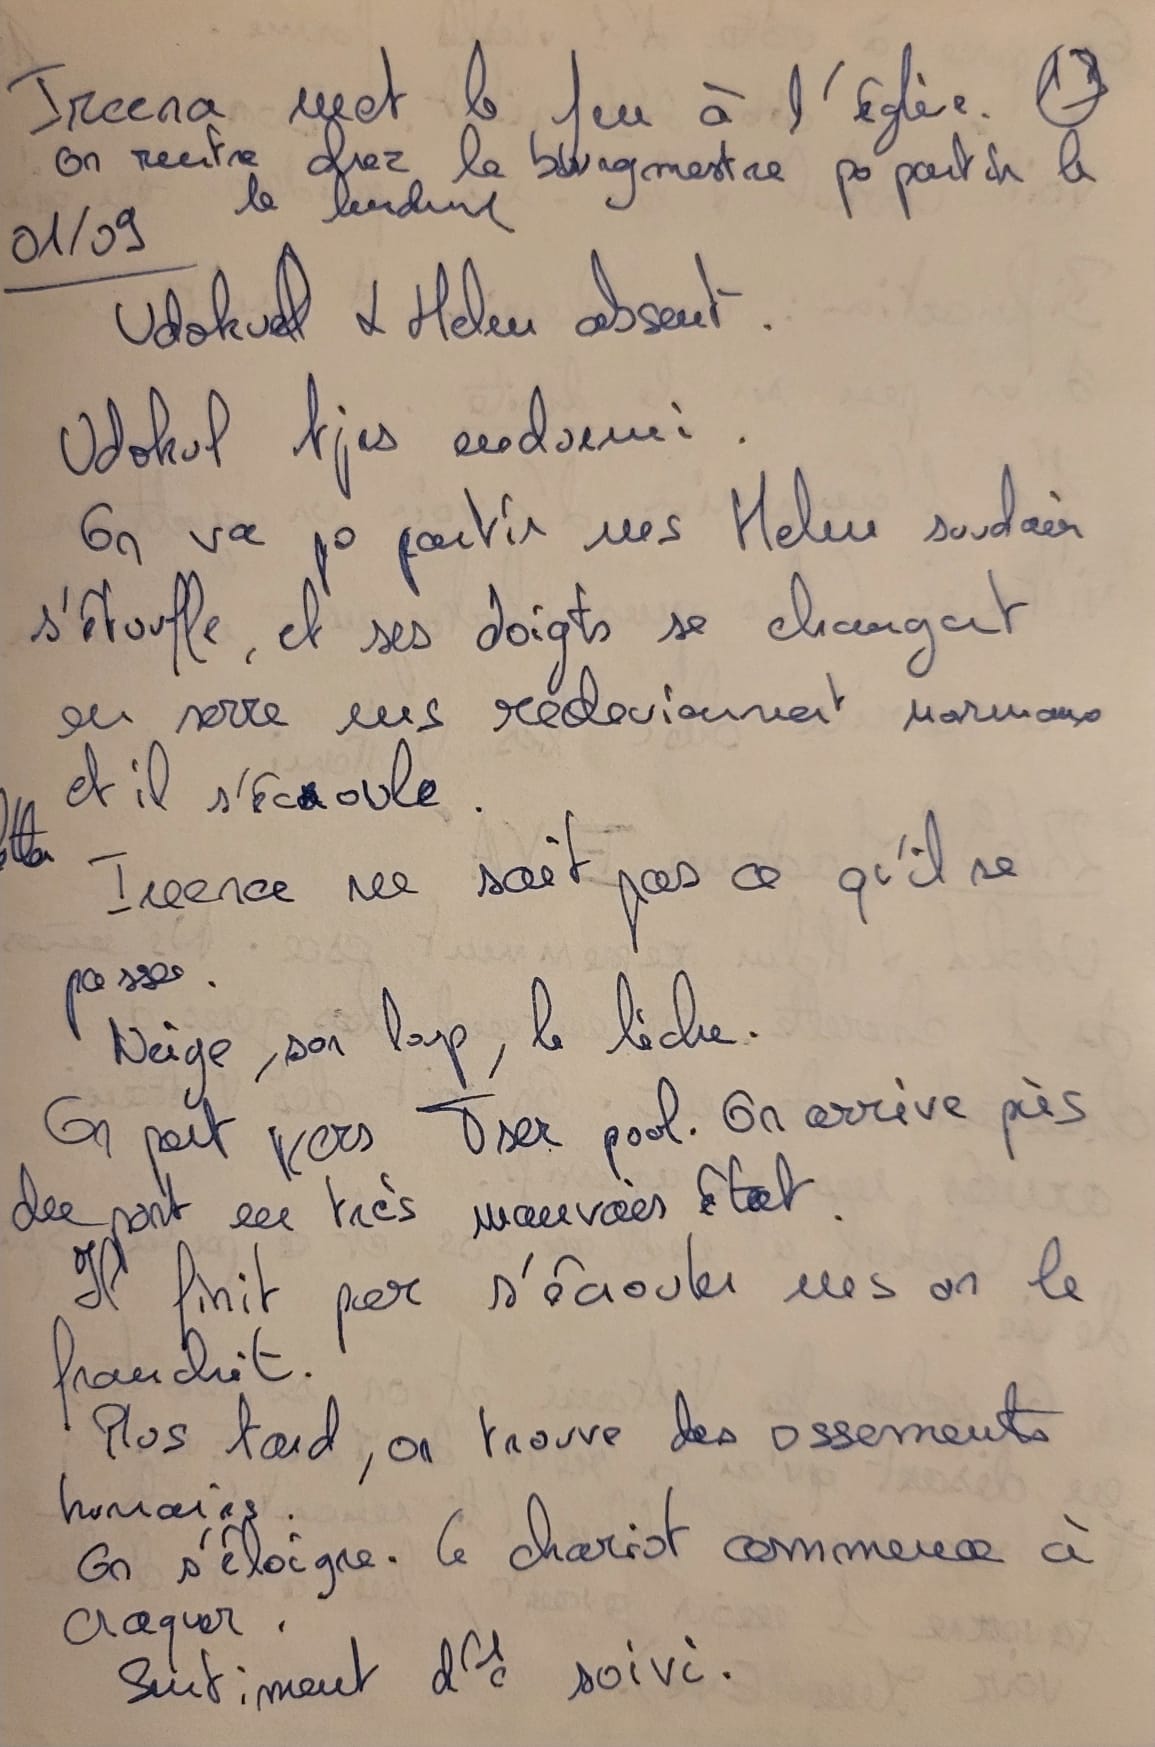 Ireena met le feu à l'église. 13
On rentre chez la burgmestre po partir le
le lendem
01/09
Udokul & Helm absent.
Udokul tjrs endormi.
On va po partir mes Helm soudain
s'étouffe, et ses doigts se changent
en serre mes redeviennent normaux
et il s'écroule.
Ireena ne sait pas ce qu'il se
passe.
Neige, son loup, le lèche.
On part vers Tser pool. On arrive près
de pont en très mauvais état.
Il finit par s'écrouler mes on le
franchit.
Plus tard, on trouve des ossements
humains.
On s'éloigne. Le chariot commence à
craquer.
Sentiment d'ê suivi.